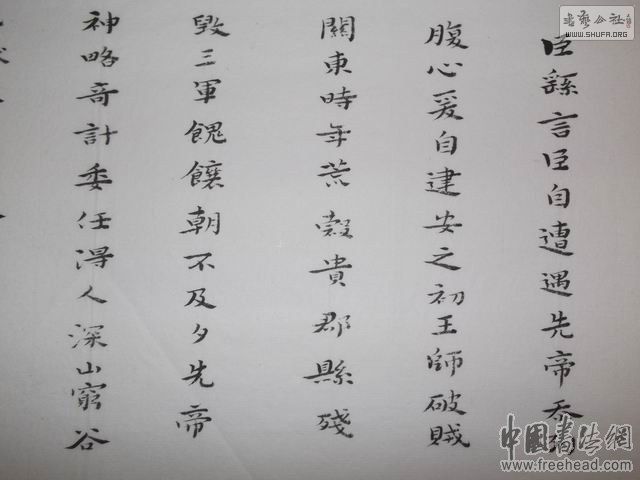 臣繇言臣自遭遇先帝忝列
腹心爰自建安之初王師破賊
關東時年荒穀貴郡縣殘
毀三軍餽饟朝不及夕先帝
神略奇計委任得人深山窮谷
书艺公社
WWW.SHUFA.ORG
中國書法網
www.freehead.com